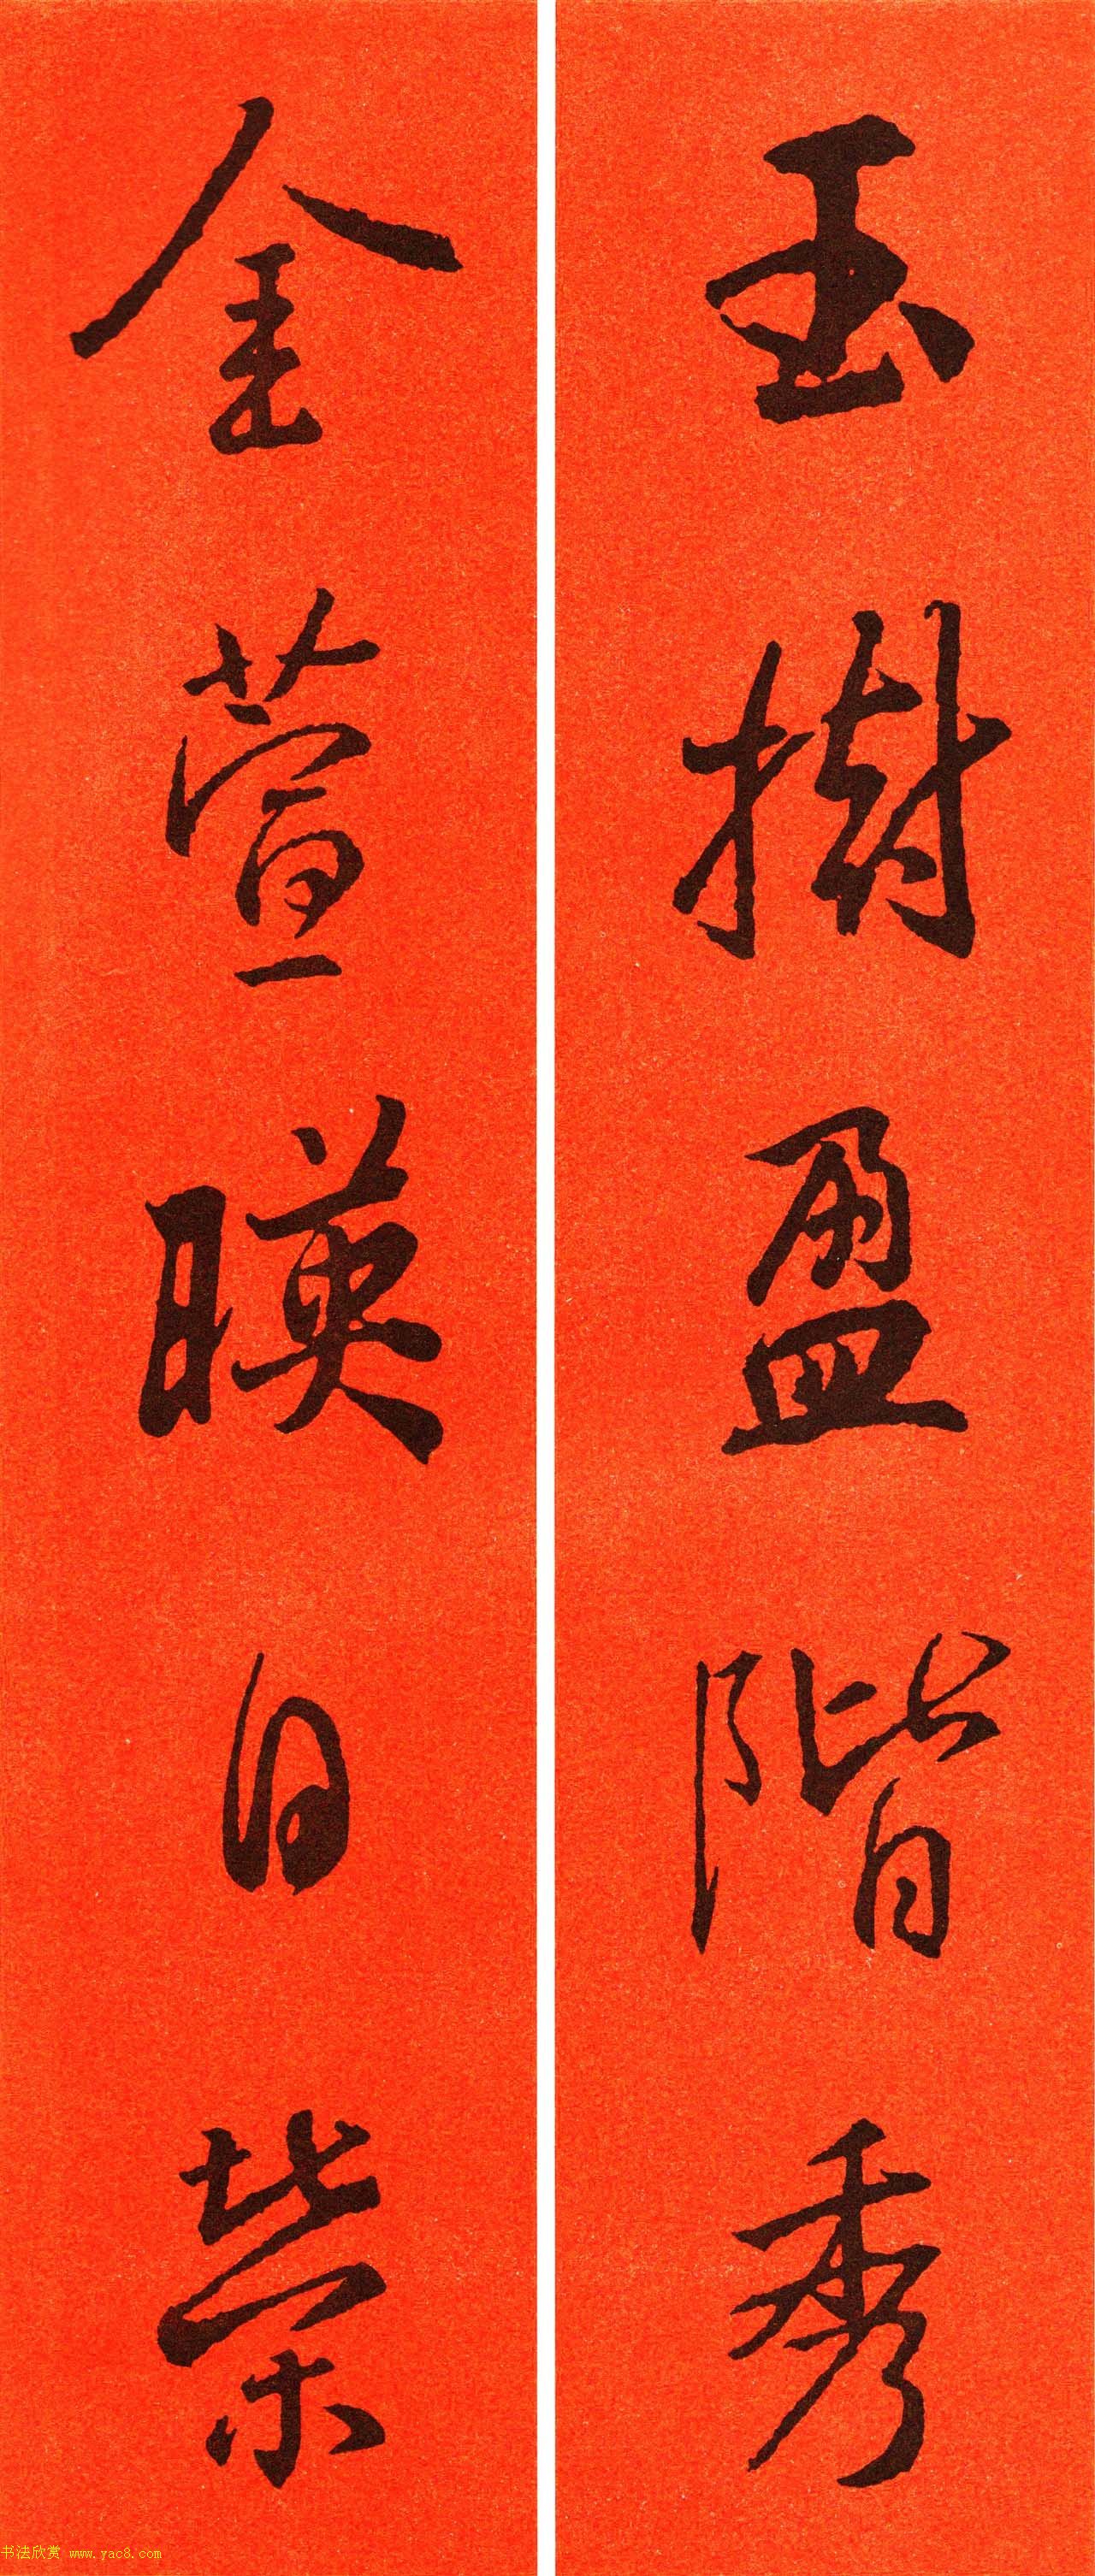 玉樹盈階秀
金萱暎日榮
书法欣赏 www.yac8.com